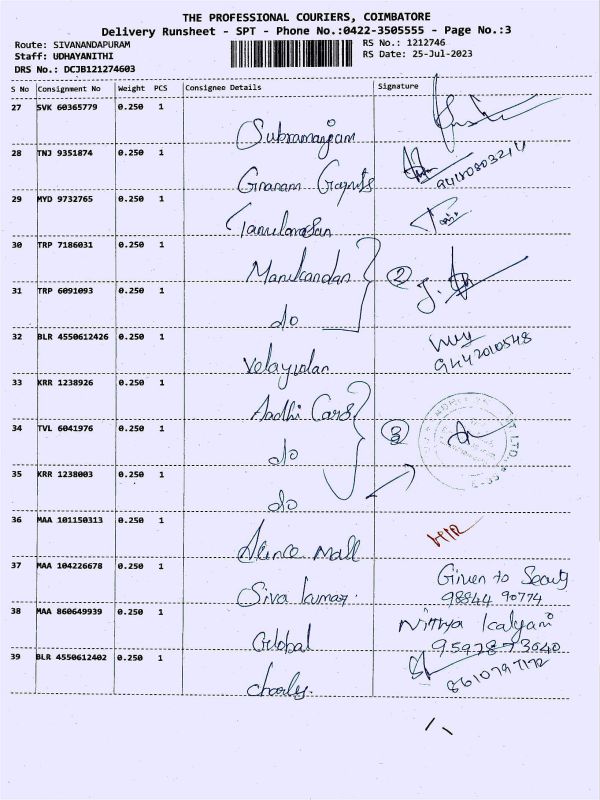 THE PROFESSIONAL COURIERS, COIMBATORE
Delivery Runsheet - SPT - Phone No.:0422-3505555 - Page No.:3
Route: SIVANANDAPURAM
Staff: UDHAYANITHI
DRS No.: DCJB121274603
RS No.: 1212746
RS Date: 25-Jul-2023
S No Consignment No Weight PCS Consignee Details Signature
27 SVK 60365779 0.250 1
Subramaniam
28 TNJ 9351874 0.250 1
Gnanam
29 MYD 9732765 0.250 1
Tamilarasan
30 TRP 7186031 0.250 1
Manikandan 2
31 TRP 6091093 0.250 1
do
32 BLR 4550612426 0.250 1
Velayudan 9442010548
33 KRR 1238926 0.250 1
Aadhi Cars
34 TVL 6041976 0.250 1
do 3
35 KRR 1238003 0.250 1
do
36 MAA 101150313 0.250 1
Mall
37 MAA 104226678 0.250 1
Siva kumar. Given to
98844 90774
38 MAA 860649939 0.250 1
Global Nithya Kalyani
9597873040
39 BLR 4550612402 0.250 1
Charles. 8610797172